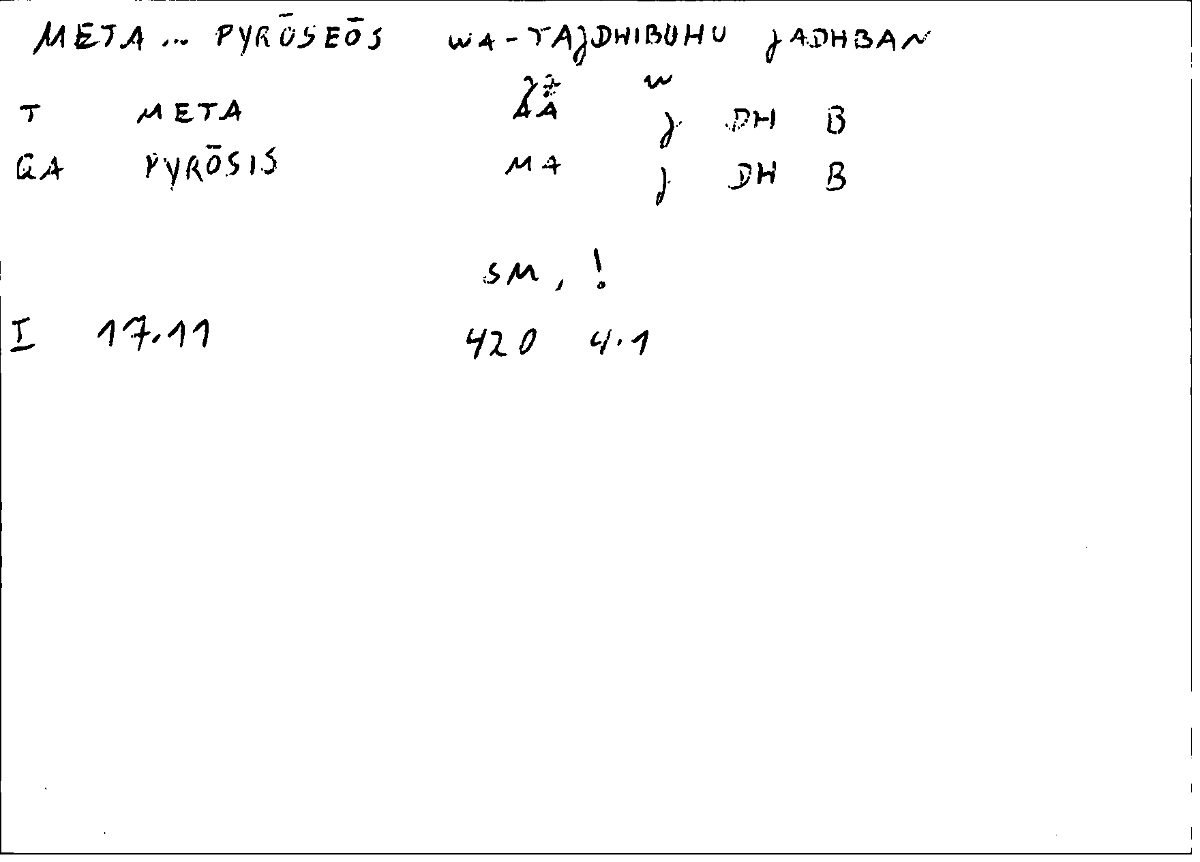 META ... PYRŌSEŌS WA-TAJDHIBUHU JADHBAN
T META AA W J DH B
QA PYRŌSIS MA J DH B
SM, !
I 17.11 420 4.1